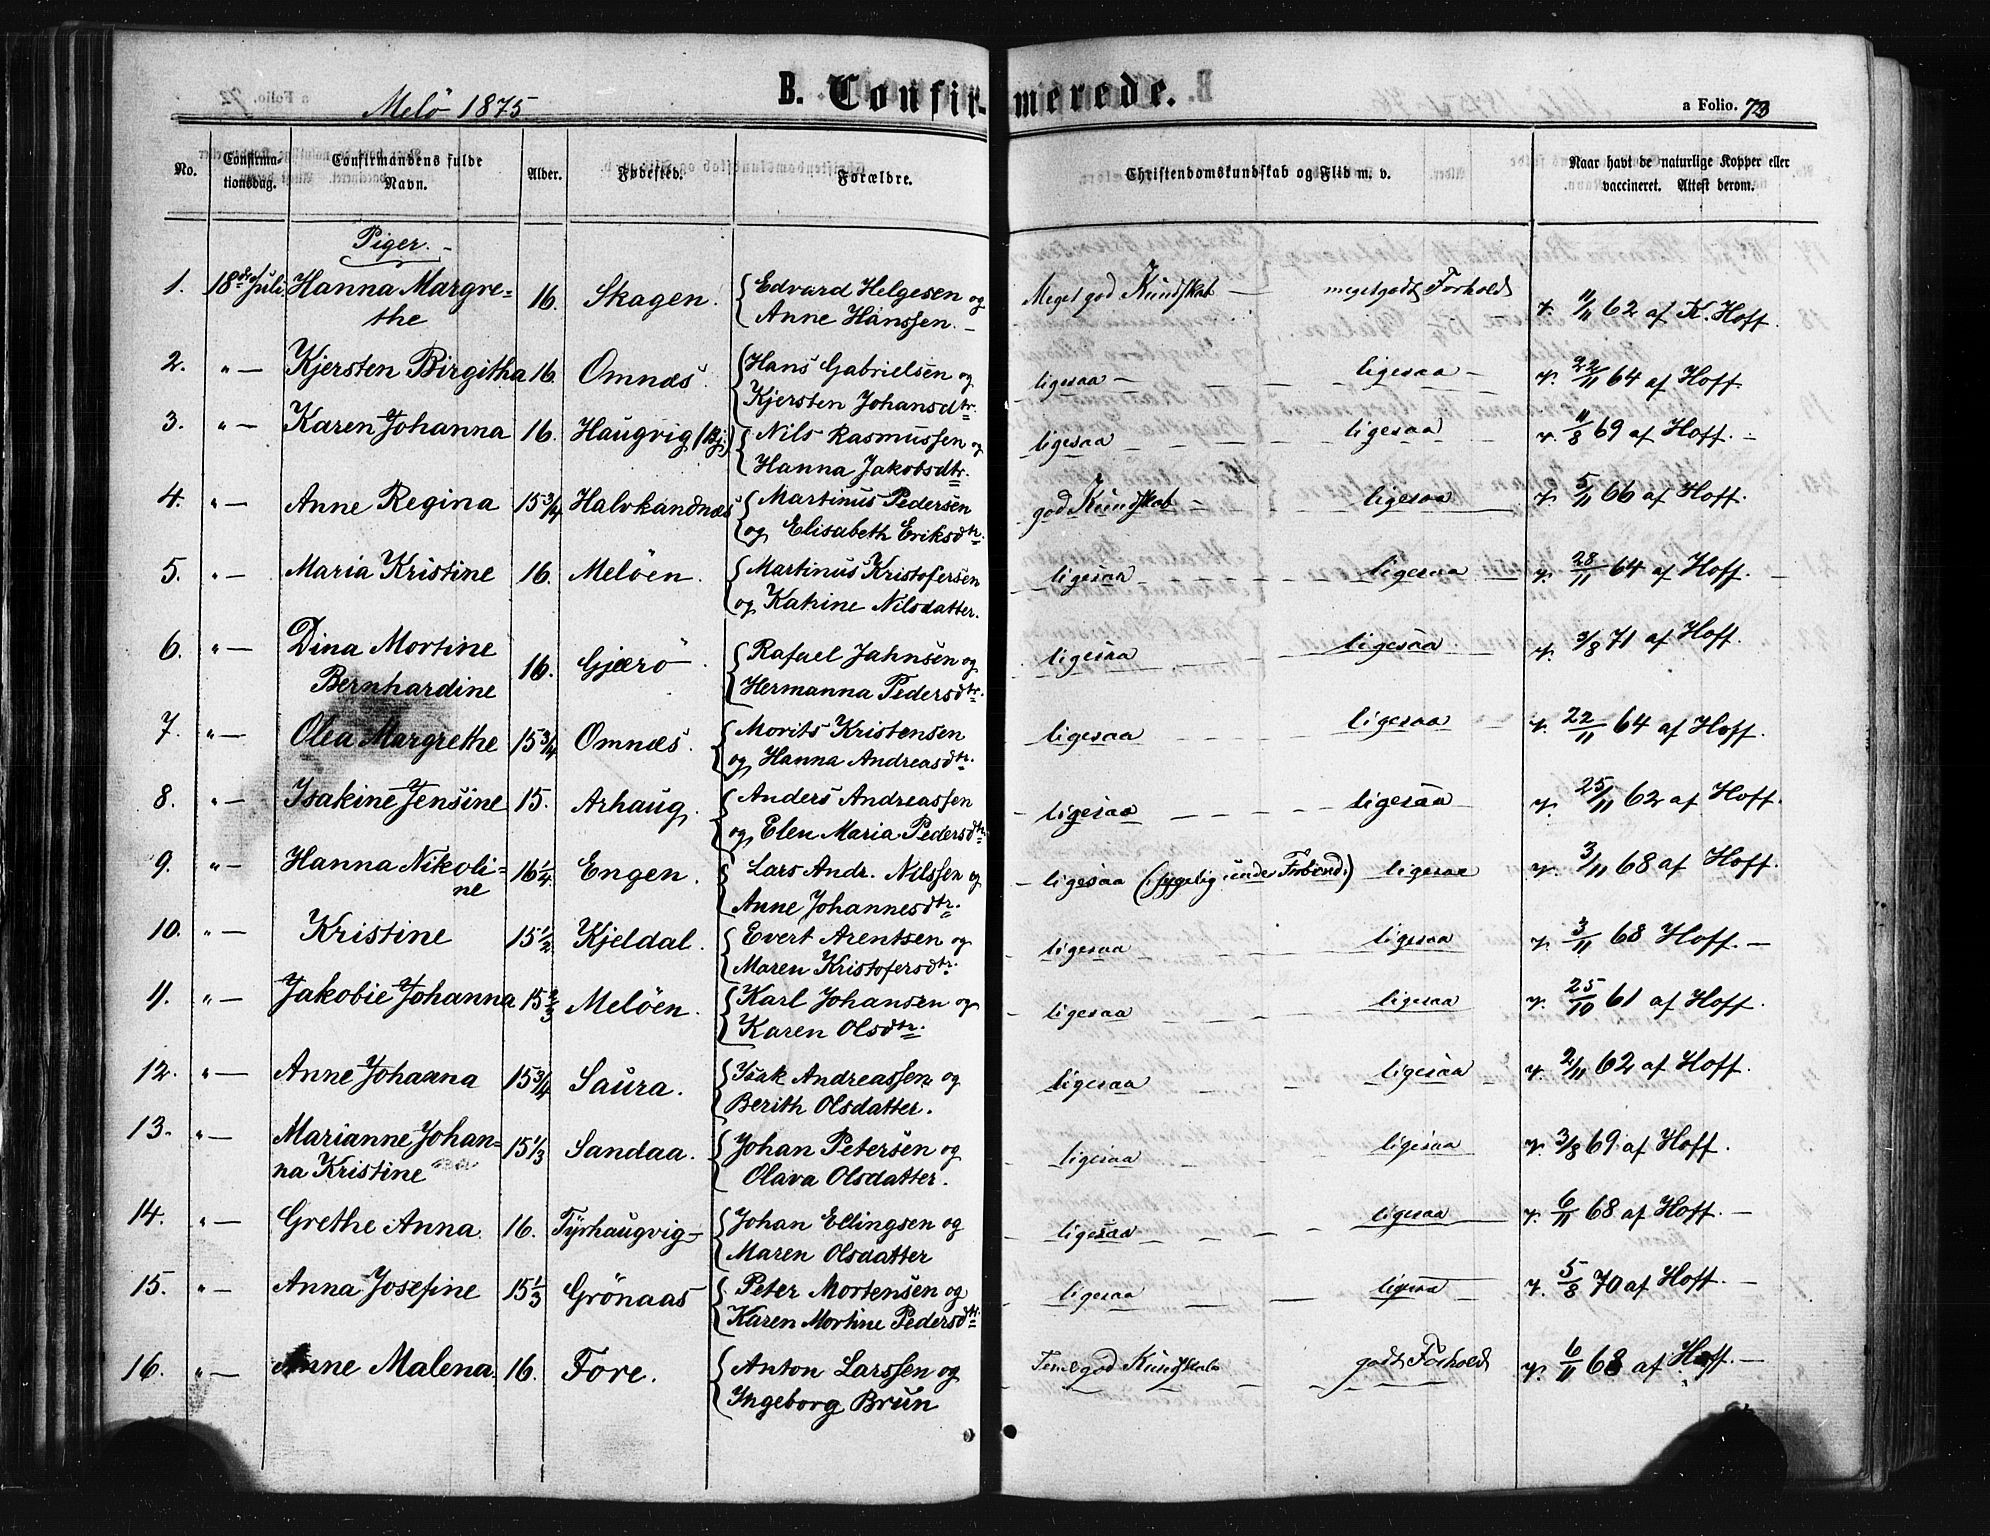 Melö 1875
B. Confirmerede.
a Folio. 73
No.
Confirma-
tionsdag.
Confirmandens fulde
Navn.
Alder.
Fødested.
Forældre.
Christendomskundskab og Flid m. v.
Naar havt de naturlige Kopper eller
vaccineret. Attest derom.
Piger.
1. 18de Juli Hanna Margre- 16. Skagen. Edvard Helgesen og Meget god Kundskab megetgodt Forhold v. 11/11 62 af K. Hoff.
the Anne Hanssen.
2. " — Kjersten Birgitha 16. Omnæs. Hans Gabrielsen og ligesaa ligesaa v. 22/11 64 af Hoff.
Kjersten Johansdtr.
3. " — Karen Johanna 16. Haugvig (Bj.) Nils Rasmussen og ligesaa ligesaa v. 11/8 69 af Hoff.
Hanna Jakobsdtr.
4. " — Anne Regina 15 3/4 Halvkandnæs Martinus Pedersen god Kundskab ligesaa v. 5/11 66 af Hoff.
og Elisabeth Eriksdtr.
5. " — Maria Kristine 16. Melöen. Martinus Kristofersen ligesaa ligesaa v. 28/11 64 af Hoff.
og Katrine Nilsdatter.
6. " — Dina Mortine 16. Gjærö. Rafael Jahnsen og ligesaa ligesaa v. 3/8 71 af Hoff.
Bernhardine Hermanna Pedersdtr.
7. " — Olea Margrethe 15 3/4 Omnæs. Morits Kristensen ligesaa ligesaa v. 22/11 64 af Hoff.
og Hanna Andreasdtr.
8. " — Isakine Jensine 15. Arhaug. Anders Andreassen ligesaa ligesaa v. 25/11 62 af Hoff.
og Elen Maria Pedersdtr.
9. " — Hanna Nikoli- 16 1/4 Engen. Lars Andr. Nilssen og ligesaa (sygelig under Forbered.) ligesaa v. 3/11 68 af Hoff.
ne Anne Johannesdtr.
10. " — Kristine 15 1/2 Kjeldal. Evert Arentsen og ligesaa ligesaa v. 3/11 68 Hoff.
Maren Kristofersdtr.
11. " — Jakobie Johanna 15 2/3 Melöen. Karl Johansen og ligesaa ligesaa v. 25/10 61 af Hoff.
Karen Olsdtr.
12. " — Anne Johanna 15 3/4 Saura. Isak Andreassen og ligesaa ligesaa v. 2/11 62 af Hoff.
Berith Olsdatter.
13. " — Marianne Johan- 15 1/3 Sandaa. Johan Petersen og ligesaa ligesaa v. 3/8 69 af Hoff.
na Kristine Olava Olsdatter.
14. " — Grethe Anna 16. Tyrhaugvig Johan Ellingsen og ligesaa ligesaa v. 6/11 68 af Hoff.
Maren Olsdatter
15. " — Anna Josefine 15 1/3 Grönaas Peter Mortensen og ligesaa ligesaa v. 5/8 70 af Hoff.
Karen Mortine Pedersdtr.
16. " — Anne Malena. 16. Fore. Anton Larssen og Temmelig god Kundskab godt Forhold v. 6/11 68 af Hoff.
Ingeborg Brun